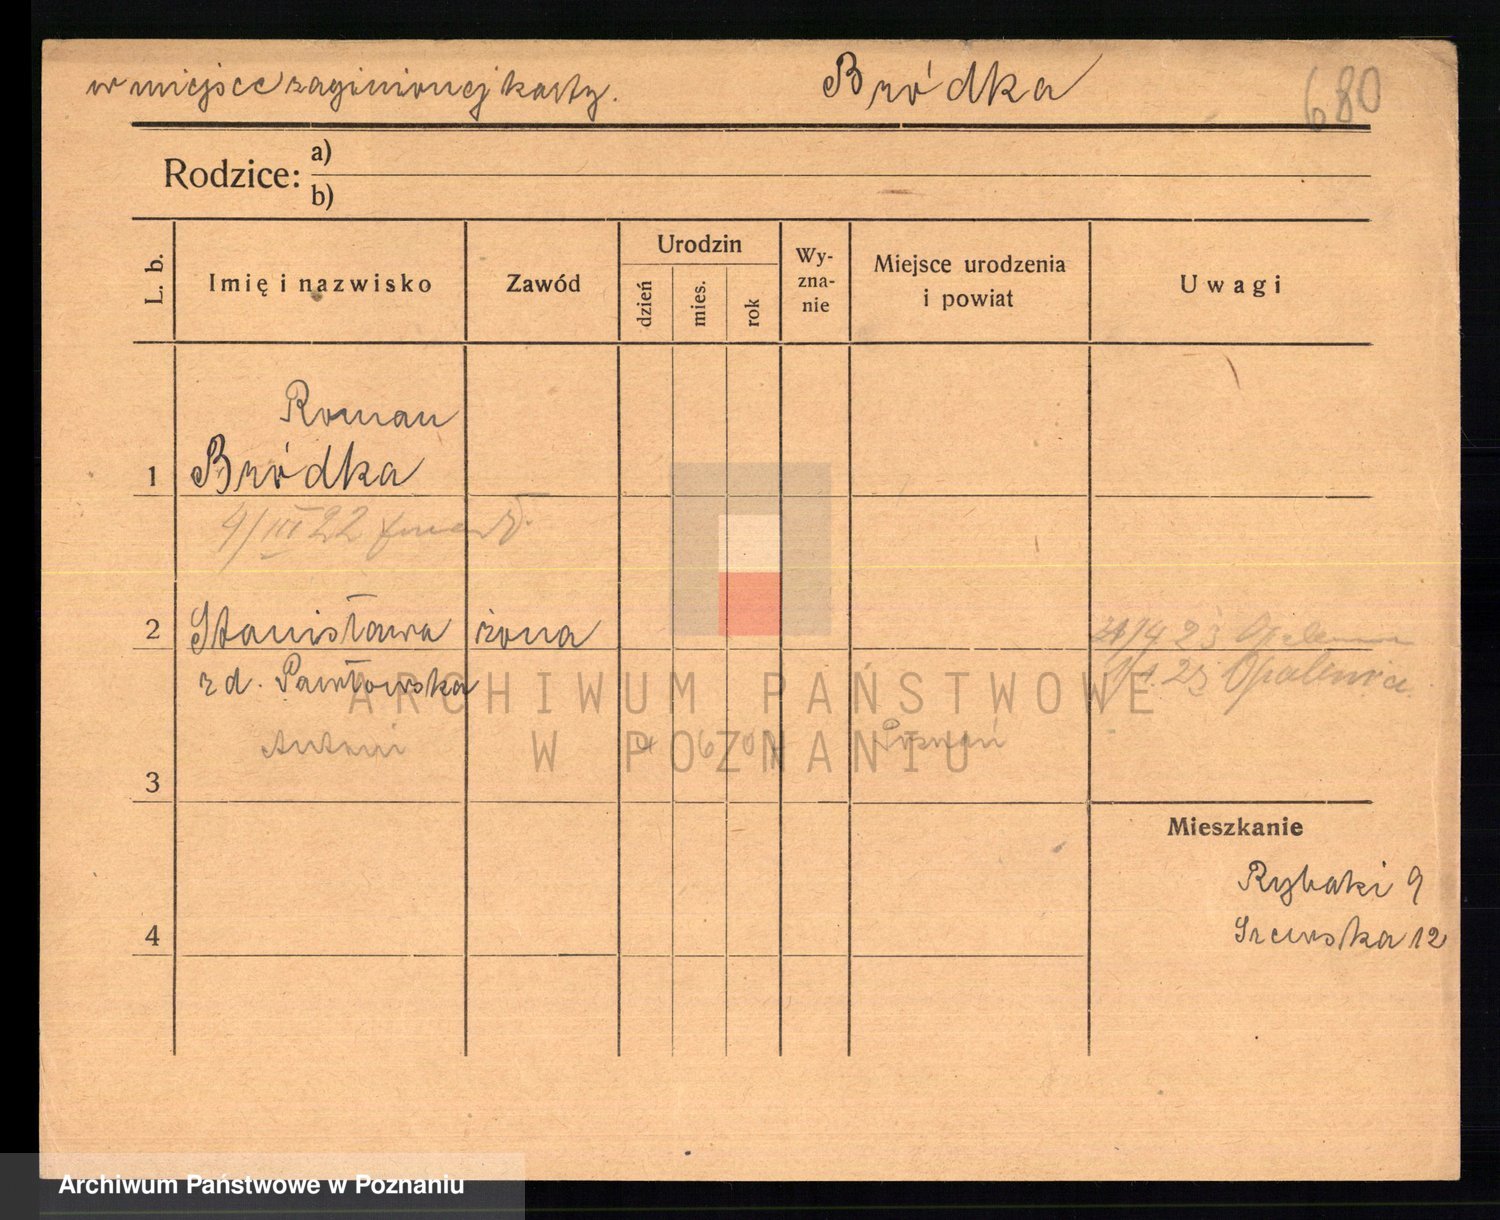 w miejsce zaginionej karty.
Bródka
680
Rodzice:
a)
b)
L. b.
Imię i nazwisko
Zawód
Urodzin
dzień
mies.
rok
Wy-
zna-
nie
Miejsce urodzenia
i powiat
Uwagi
Roman
1 Bródka
4/III 22
2 Stanisława żona
zd. Pawłowska
23 Opalenica
Antoni 4 6 Poznań
3
Mieszkanie
Rybaki 9
4
Szewska 12
ARCHIWUM PAŃSTWOWE
W POZNANIU
Archiwum Państwowe w Poznaniu